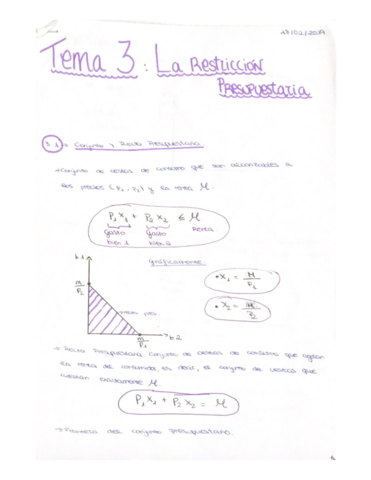 18/02/2019
Tema 3: La Restricción
Presupuestaria
3.1 → Conjunto y Recta Presupuestaria
→ Conjunto de cestas de consumo que son alcanzables a
los precios (P₁, P₂) y la renta M.
P₁X₁ + P₂X₂ ≤ M
Gasto Gasto Renta.
bien 1 bien 2
gráficamente
b.1
• X₁ = M/P₁
M/P₂
• X₂ = M/P₂
M/P₁
b.2
→ Recta Presupuestaria: Conjunto de cestas de consumo que agotan
la renta del consumidor, es decir, el conjunto de cestas que
cuestan exactamente M.
P₁X₁ + P₂X₂ = M
→ Frontera del conjunto presupuestario.